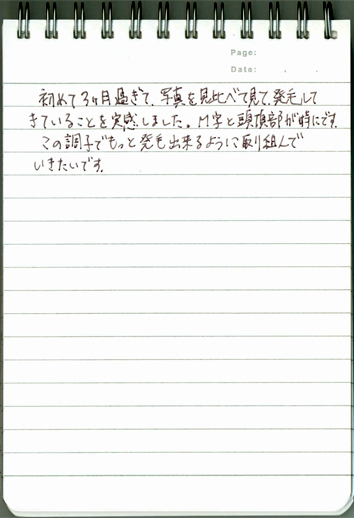 Page:
Date: . .
初めて3ヶ月過ぎて、写真を見比べて見て、発毛して
きていることを実感しました。M字と頭頂部が特にです。
この調子でもっと発毛出来るように取り組んで
いきたいです。